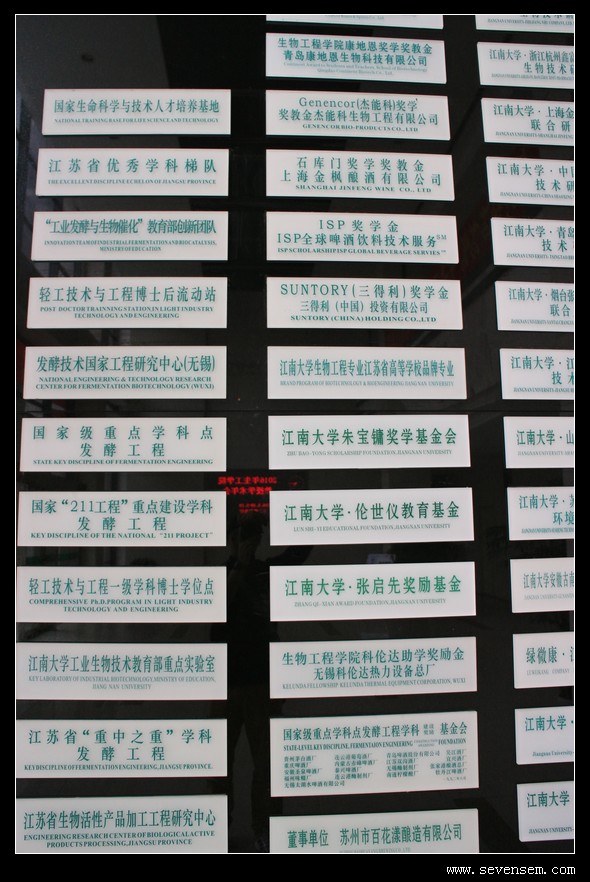 国家生命科学与技术人才培养基地
NATIONAL TRAINING BASE FOR LIFE SCIENCE AND TECHNOLOGY
江苏省优秀学科梯队
THE EXCELLENT DISCIPLINE ECHELON OF JIANGSU PROVINCE
“工业发酵与生物催化”教育部创新团队
INNOVATION TEAM OF INDUSTRIAL FERMENTATION AND BIOCATALYSIS,
MINISTRY OF EDUCATION
轻工技术与工程博士后流动站
POST DOCTOR TRAINNING STATION IN LIGHT INDUSTRY
TECHNOLOGY AND ENGINEERING
发酵技术国家工程研究中心(无锡)
NATIONAL ENGINEERING & TECHNOLOGY RESEARCH
CENTER FOR FERMENTATION BIOTECHNOLOGY (WUXI)
国家级重点学科点
发酵工程
STATE KEY DISCIPLINE OF FERMENTATION ENGINEERING
国家“211工程”重点建设学科
发酵工程
KEY DISCIPLINE OF THE NATIONAL "211 PROJECT"
轻工技术与工程一级学科博士学位点
COMPREHENSIVE Ph.D.PROGRAM IN LIGHT INDUSTRY
TECHNOLOGY AND ENGINEERING
江南大学工业生物技术教育部重点实验室
KEY LABORATORY OF INDUSTRIAL BIOTECHNOLOGY, MINISTRY OF EDUCATION,
JIANG NAN UNIVERSITY
江苏省“重中之重”学科
发酵工程
KEY DISCIPLINE OF FERMENTATION ENGINEERING, JIANGSU PROVINCE.
江苏省生物活性产品加工工程研究中心
ENGINEERING RESEARCH CENTER OF BIOLOGICAL ACTIVE
PRODUCTS PROCESSING, JIANGSU PROVINCE
生物工程学院康地恩奖学奖教金
青岛康地恩生物科技有限公司
Genencor(杰能科)奖学
奖教金杰能科生物工程有限公司
GENENCOR BIO-PRODUCTS CO., LTD
石库门奖学奖教金
上海金枫酿酒有限公司
SHANGHAI JINFENG WINE CO., LTD
ISP 奖学金
ISP全球啤酒饮料技术服务SM
ISP SCHOLARSHIP ISP GLOBAL BEVERAGE SERVIES
SUNTORY(三得利)奖学金
三得利（中国）投资有限公司
SUNTORY (CHINA) HOLDING CO.,LTD
江南大学生物工程专业江苏省高等学校品牌专业
BRAND PROGRAM OF BIOTECHNOLOGY & BIOENGINEERING JIANG NAN UNIVERSITY
江南大学朱宝镛奖学基金会
ZHU BAO-TONG SCHOLARSHIP FOUNDATION, JIANGNAN UNIVERSITY
江南大学·伦世仪教育基金
LUN SHI-YI EDUCATIONAL FOUNDATION, JIANGNAN UNIVERSITY
江南大学·张启先奖励基金
ZHANG QI-XIAN AWARD FOUNDATION, JIANGNAN UNIVERSITY
生物工程学院科伦达助学奖励金
无锡科伦达热力设备总厂
KELUNDA FELLOWSHIP KELUNDA THERMAL EQUIPMENT CORPORATION, WUXI
国家级重点学科点发酵工程学科 基金会
STATE-LEVEL KEY DISCIPLINE, FERMENTAION ENGINEERING FOUNDATION
董事单位 苏州市百花漾酿造有限公司
江南大学·浙江杭州
生物技术
江南大学·上海金
联合研
江南大学·中
技术研
江南大学·青岛
技术
江南大学·烟台张
联合
江南大学·江
技术
江南大学·山
江南大学·
环境
江南大学安徽古南
绿微康·江
江南大学·
江南大学·
www.sevensem.com